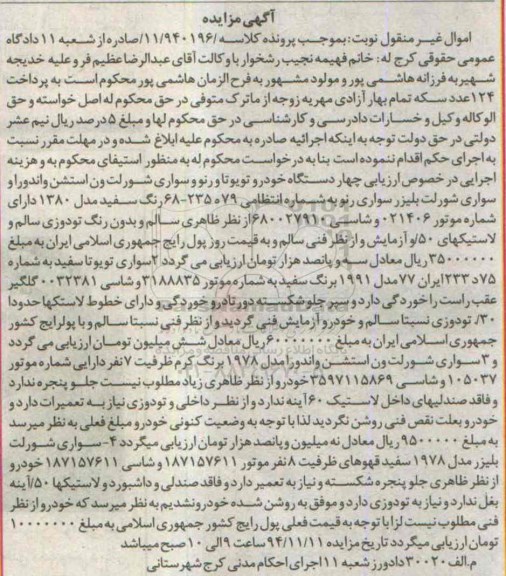 آگهی مزایده
اموال غیر منقول نوبت: بموجب پرونده کلاسه /۱۱/۹۴۰۱۹۶/صادره از شعبه ۱۱ دادگاه
عمومی حقوقی کرج له: خانم فهیمه نجیب رشخوار با وکالت آقای عبدالرضا عظیم فر و علیه خدیجه
شهیر به فرزانه هاشمی پور و مولود مشهور به فرح الزمان هاشمی پور محکوم است به پرداخت
۱۲۴عدد سکه تمام بهار آزادی مهریه زوجه از ماترک متوفی در حق محکوم له اصل خواسته و حق
الوکاله وکیل و خسارات دادرسی و کارشناسی در حق محکوم لها و مبلغ ۵درصد ریال نیم عشر
دولتی در حق دولت توجه به اینکه اجرائیه صادره به محکوم علیه ابلاغ شده و در مهلت مقرر نسبت
به اجرای حکم اقدام ننموده است بنا به درخواست محکوم له به منظور استیفای محکوم به و هزینه
اجرایی در خصوص ارزیابی چهار دستگاه خودرو تویوتا و رنو و سواری شورلت ون استشن واندورا و
سواری شورلت بلیزر سواری رنو به شماره انتظامی ۷۹ه۲۳۵-۶۸رنگ سفید مدل ۱۳۸۰ دارای
شماره موتور ۰۲۱۴۰۶ و شاسی ۶۸۰۰۲۷۹۱۰از نظر ظاهری سالم و بدون رنگ تودوزی سالم و
لاستیکهای ۵۰/و آزمایش و از نظر فنی سالم و به قیمت روز پول رایج جمهوری اسلامی ایران به مبلغ
۳۵۰۰۰۰۰۰ریال معادل سه و پانصد هزار تومان ارزیابی می گردد ۲سواری تویوتا سفید به شماره
۷۵د۲۳۳ایران ۷۷ مدل ۱۹۹۱ برنگ سفید به شماره موتور ۳۱۸۸۸۳۵ و شاسی ۰۰۳۲۳۸۱ گلگیر
عقب راست را خوردگی دارد و سپر جلو شکسته دور تا دور خوردگی و دارای خطوط لاستکها حدودا
۳۰/ تودوزی نسبتا سالم و خودرو آزمایش فنی گردید و از نظر فنی نسبتا سالم و با پول رایج کشور
جمهوری اسلامی ایران به مبلغ ۶۰۰۰۰۰۰۰ریال معادل شش میلیون تومان ارزیابی می گردد
و ۳سواری شورلت ون استشن واندورا مدل ۱۹۷۸ برنگ کرم ظرفیت ۷نفر دارایی شماره موتور
۱۰۵۰۳۷ و شاسی ۳۵۹۷۱۱۵۸۶۹ خودرو از نظر ظاهری زیاد مطلوب نیست جلو پنجره ندارد
و فاقد صندلیهای داخل لاستیک ۶۰آینه ندارد و از نظر داخلی و تودوزی نیاز به تعمیرات دارد و
خودرو بعلت نقص فنی روشن نگردید لذا با توجه به وضعیت کنونی خودرو مبلغ فعلی به نظر میرسد
به مبلغ ۹۵۰۰۰۰۰ریال معادل نه میلیون و پانصد هزار تومان ارزیابی میگردد ۴-سواری شورلت
بلیزر مدل ۱۹۷۸ سفید قهوه‌ای ظرفیت ۸نفر موتور ۱۸۷۱۵۷۶۱۱ و شاسی ۱۸۷۱۵۷۶۱۱ خودرو
از نظر ظاهری جلو پنجره شکسته و نیاز به تعمیر دارد و فاقد صندلی و داشبورد و لاستیکها ۵۰/آینه
بغل ندارد و نیاز به تودوزی دارد و موفق به روشن شده خودرو نشدیم به نظر میرسد که خودرو از نظر
فنی مطلوب نیست لذا با توجه به قیمت فعلی پول رایج کشور جمهوری اسلامی به مبلغ ۱۰۰۰۰۰۰۰
تومان ارزیابی میگردد تاریخ مزایده ۹۴/۱۱/۱۱ ساعت ۹ الی ۱۰ صبح میباشد
م.الف ۳۰۰۲۰ دادورز شعبه ۱۱ اجرای احکام مدنی کرج شهرستانی